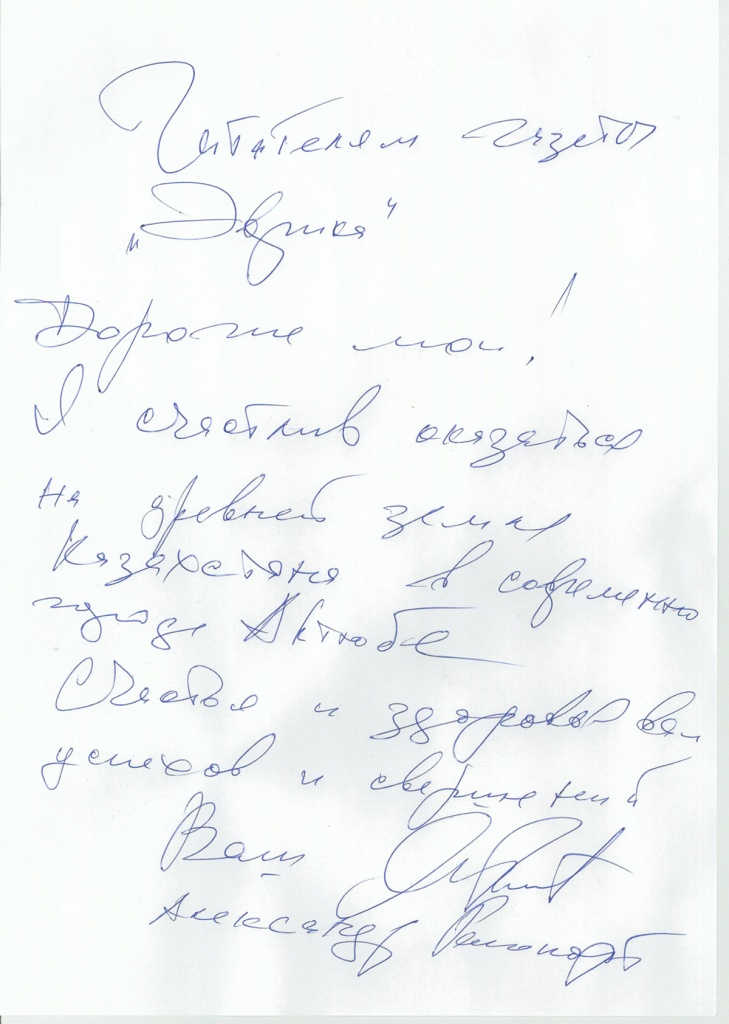 Читателям газеты
„Эврика“
Дорогие мои!
Я счастлив оказаться
на древней земле
Казахстана в современно
городе Актюбе
Счастья и здоровья вам
успехов и свершений
Ваш
Александр Рапопорт